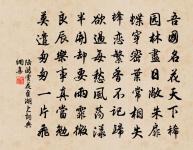 吾國名花天下
園林盡日敞朱扉
蝶穿密葉常相失
蜂戀繁香不記歸
欲過每愁風蕩漾
半開卻要雨霏微
良辰樂事真當勉
莫遣匆匆一片飛
陸游賞花至湖上 詞典
網集